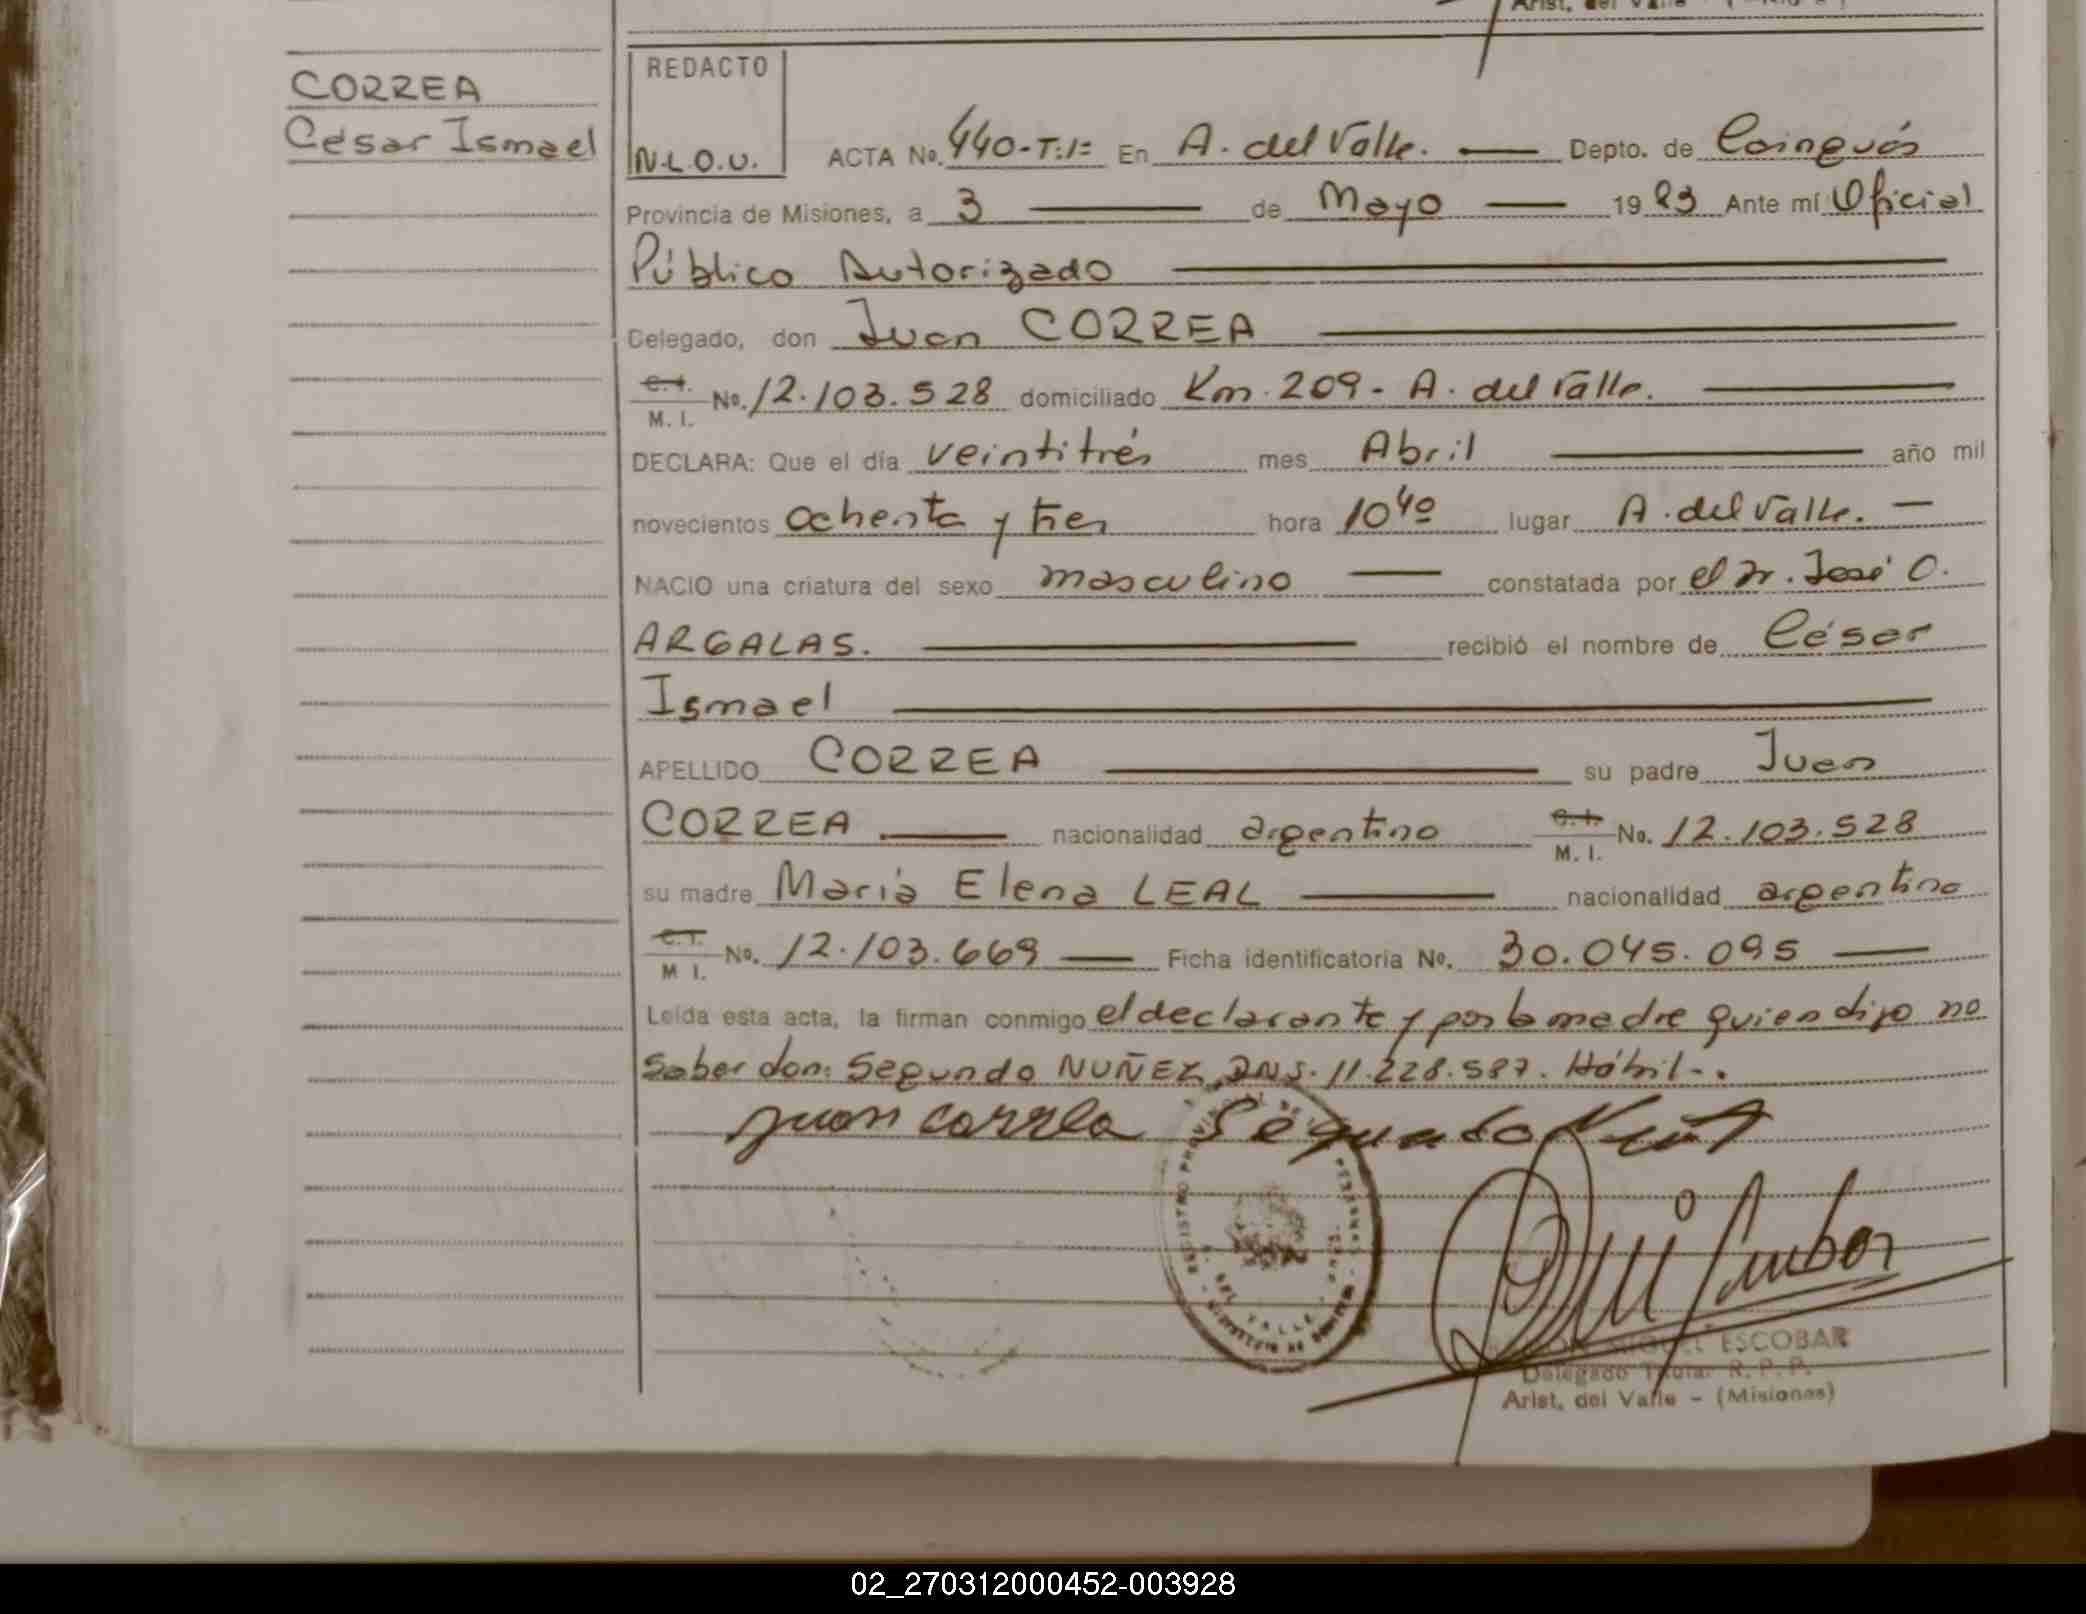 Arist. del Valle - (Misiones)
CORREA
César Ismael
REDACTO
N.L.O.U.
ACTA No. 440-T:1= En A. del Valle. Depto. de Cainguás
Provincia de Misiones, a 3 de Mayo 1983 Ante mí Oficial
Público Autorizado
Delegado, don Juan CORREA
C.I. M.I. No. 12.103.528 domiciliado Km. 209 - A. del Valle.
DECLARA: Que el día veintitrés mes Abril año mil
novecientos ochenta y tres hora 10 40 lugar A. del Valle.
NACIO una criatura del sexo masculino constatada por el Dr. José O.
ARGALAS. recibió el nombre de César
Ismael
APELLIDO CORREA su padre Juan
CORREA nacionalidad argentino C.I. M.I. No. 12.103.528
su madre María Elena LEAL nacionalidad argentina
C.I. M I. No. 12.103.669 Ficha identificatoria No. 30.045.095
Leída esta acta, la firman conmigo el declarante y por la madre quien dijo no
saber don: Segundo NUÑEZ, DNI. 11.228.587. Hábil-.
juan correa Segundo
REGISTRO PROVINCIAL DE LAS PERSONAS
DEL VALLE
MIGUEL ESCOBAR
Delegado Titular R. P. P.
Arist. del Valle - (Misiones)
02_270312000452-003928